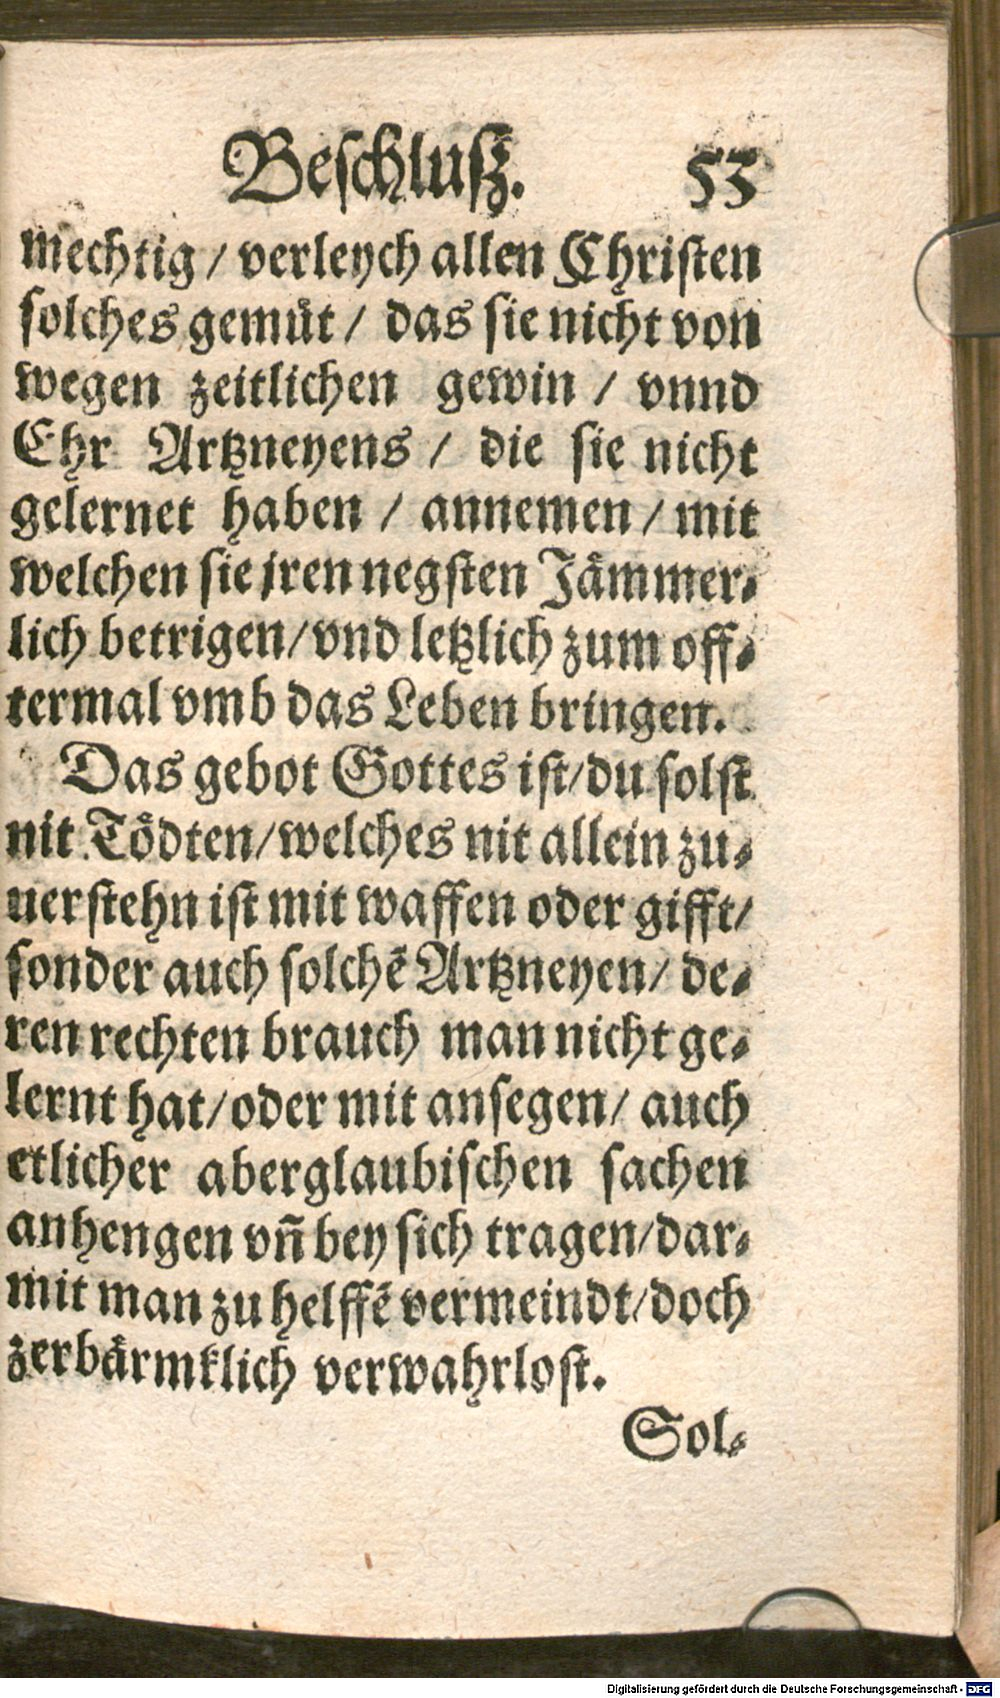 Beschlusz. 53
mechtig / verleych allen Christen
solches gemuͤt / das sie nicht von
wegen zeitlichen gewin / vnnd
Ehr Artzneyens / die sie nicht
gelernet haben / annemen / mit
welchen sie jren negsten Jaͤmmer⸗
lich betrigen / vnd letzlich zum off⸗
termal vmb das Leben bringen.
Das gebot Gottes ist / du solst
nit Toͤdten / welches nit allein zu⸗
uerstehn ist mit waffen oder gifft /
sonder auch solchẽ Artzneyen / de⸗
ren rechten brauch man nicht ge⸗
lernt hat / oder mit ansegen / auch
etlicher aberglaubischen sachen
anhengen vñ bey sich tragen / dar⸗
mit man zu helffẽ vermeindt / doch
zerbaͤrmklich verwahrlost.
Sol⸗
Digitalisierung gefördert durch die Deutsche Forschungsgemeinschaft - DFG